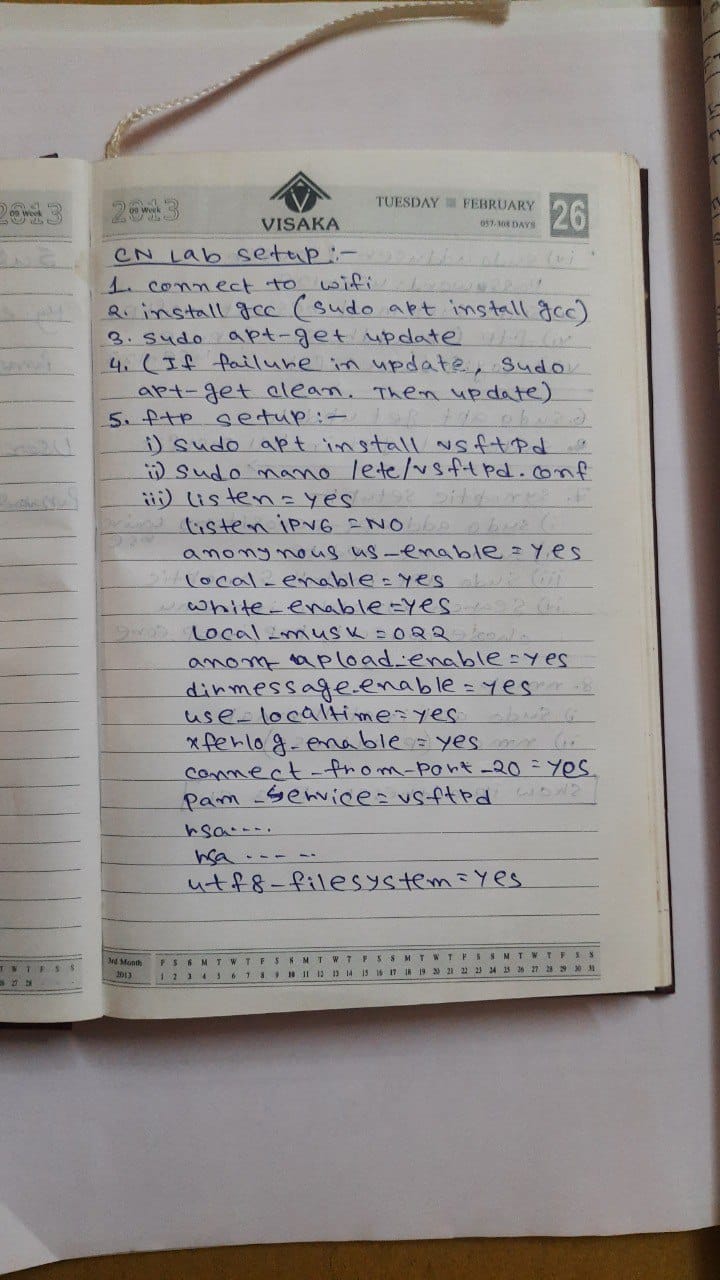 2013
09 Week
2013
09 Week
VISAKA
TUESDAY FEBRUARY
057-308 DAYS
26
CN Lab setup :-
1. connect to wifi
2. install gcc (sudo apt install gcc)
3. sudo apt-get update
4. (If failure in update, sudo
apt-get clean. Then update)
5. ftp setup :-
i) sudo apt install vsftpd
ii) sudo nano /etc/vsftpd.conf
iii) listen = yes
listen ipv6 = NO
anonymous us-enable = yes
local-enable = yes
white-enable = yes
local-musk = 022
anom upload-enable = yes
dirmessage-enable = yes
use-localtime = yes
xferlog-enable = yes
connect-from-port-20 = yes
pam-service = vsftpd
rsa....
rsa -----
utf8-filesystem = yes
3rd Month
2013
F S S M T W T F S S M T W T F S S M T W T F S S M T W T F S S
1 2 3 4 5 6 7 8 9 10 11 12 13 14 15 16 17 18 19 20 21 22 23 24 25 26 27 28 29 30 31
T W T F S S
27 28